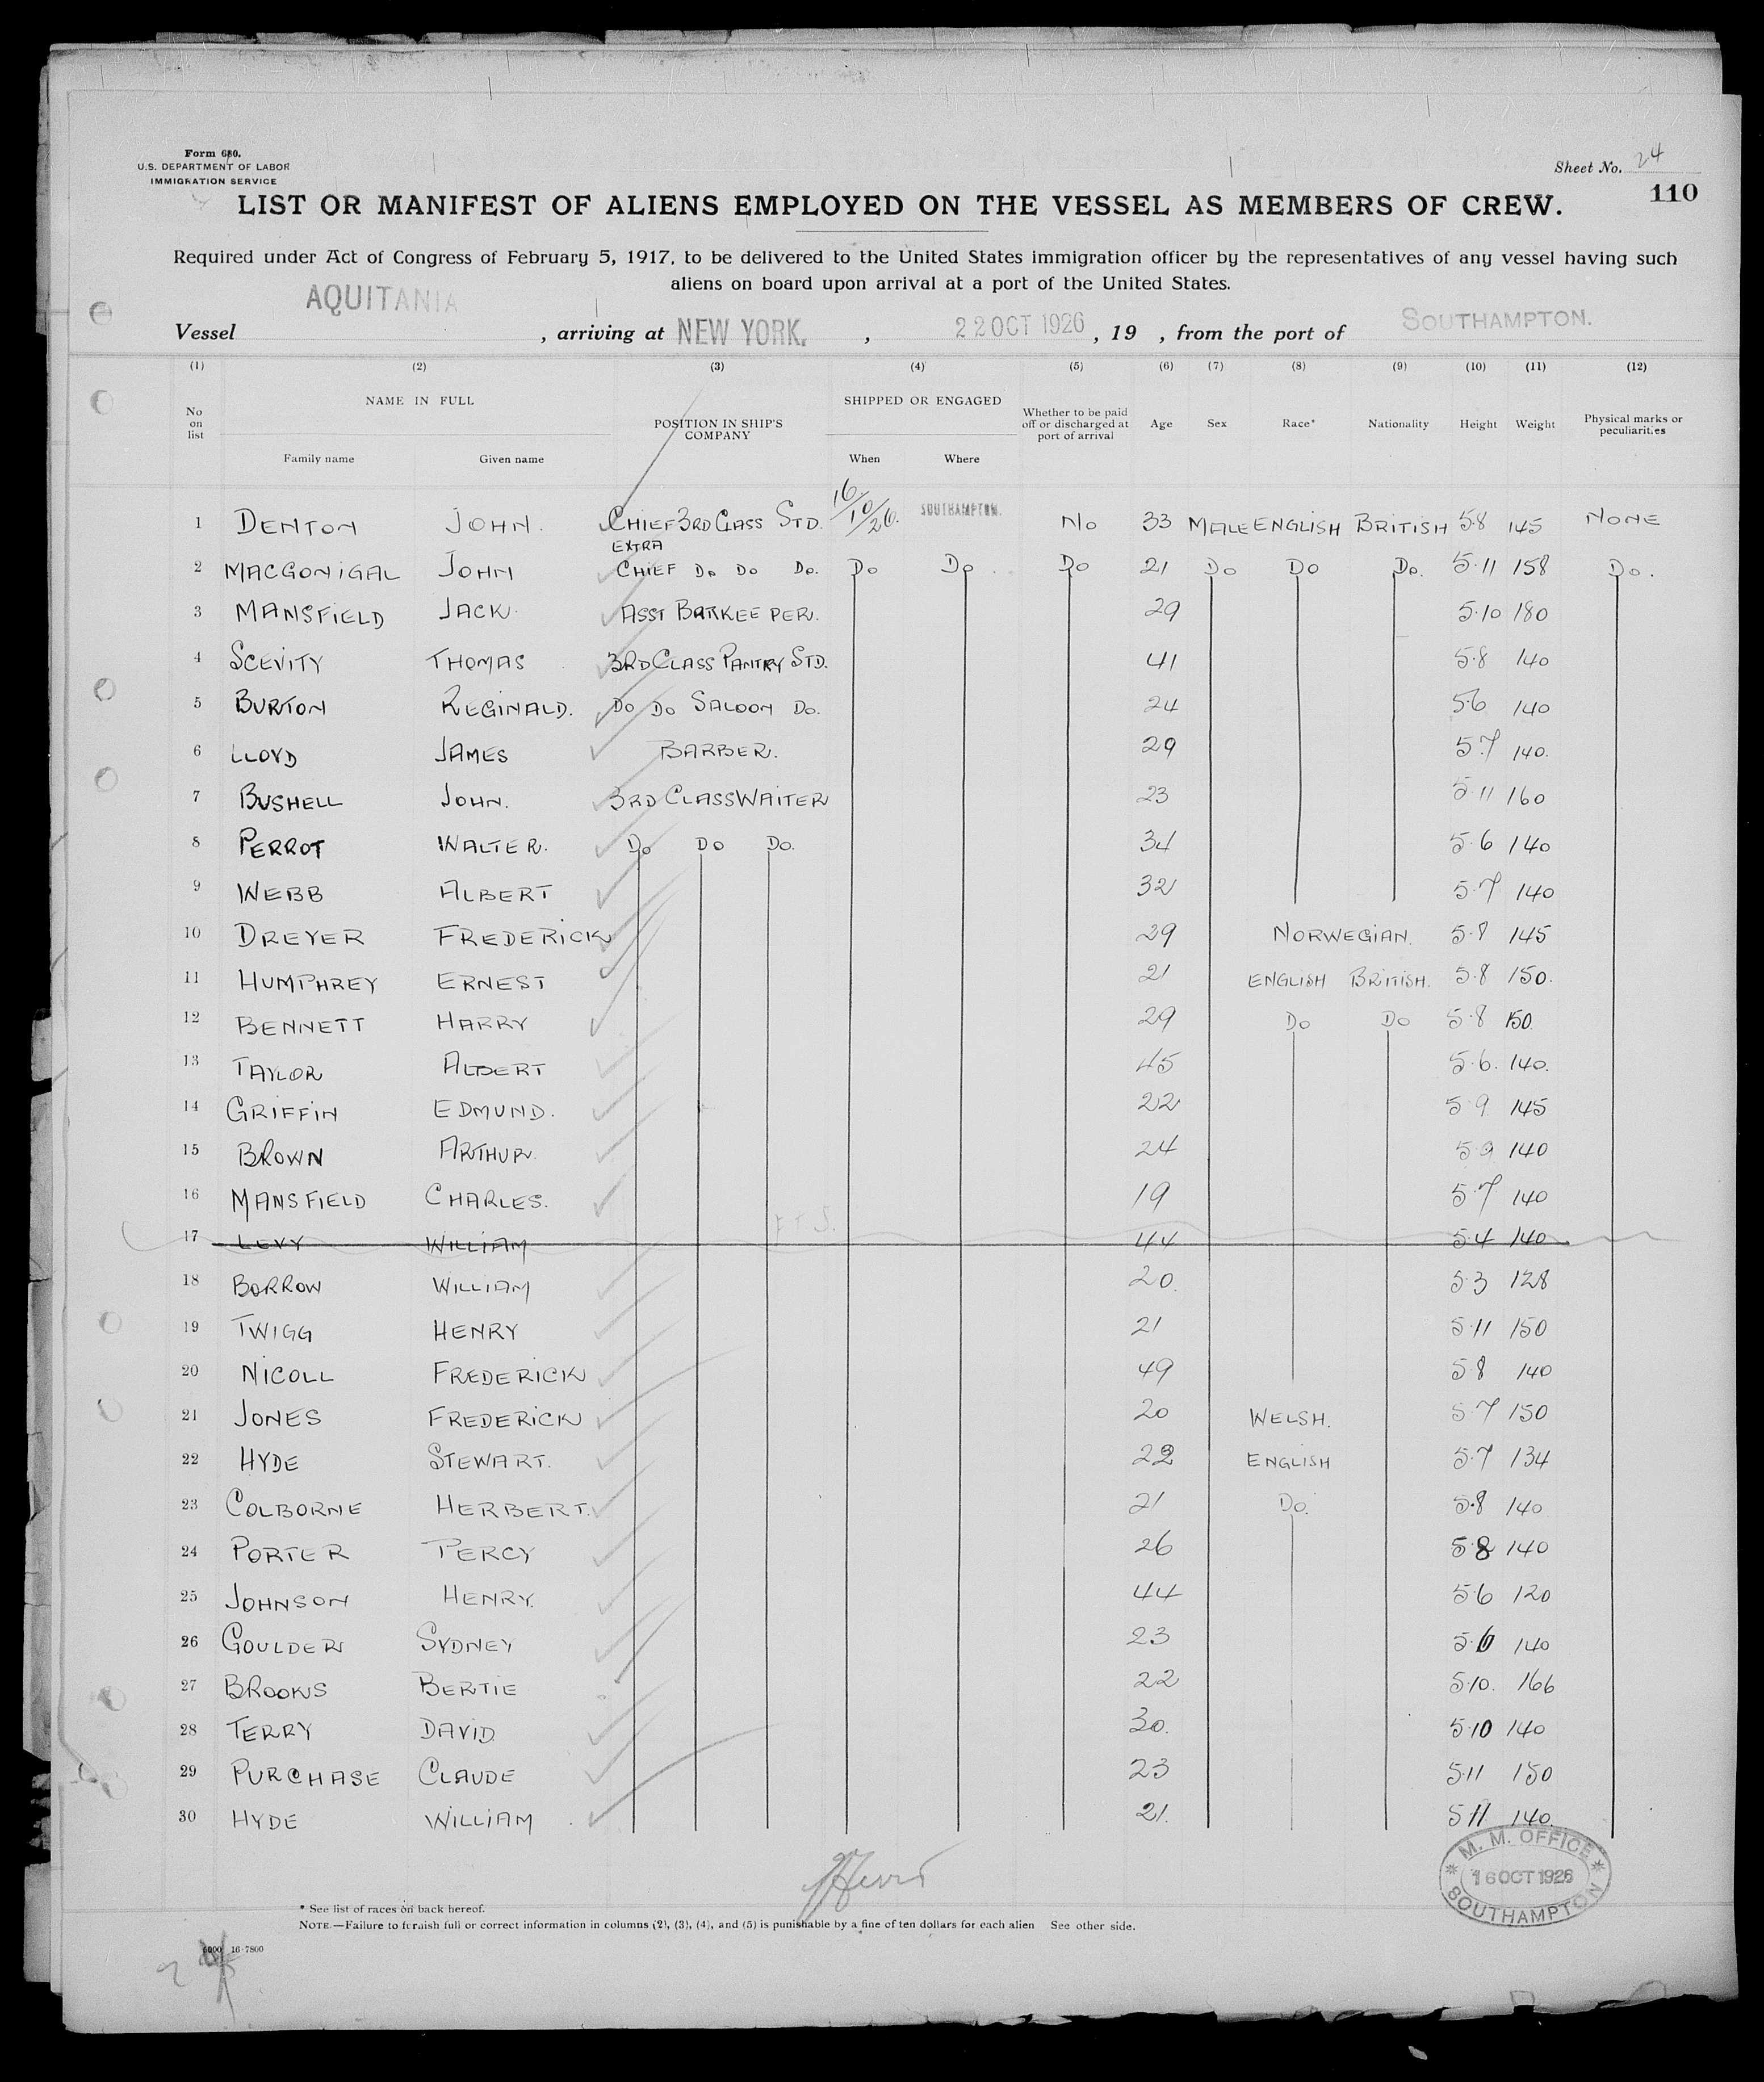 Form 680.
U.S. DEPARTMENT OF LABOR
IMMIGRATION SERVICE
Sheet No. 24
110
LIST OR MANIFEST OF ALIENS EMPLOYED ON THE VESSEL AS MEMBERS OF CREW.
Required under Act of Congress of February 5, 1917, to be delivered to the United States immigration officer by the representatives of any vessel having such
aliens on board upon arrival at a port of the United States.
Vessel AQUITANIA, arriving at NEW YORK., 22 OCT 1926, 19 , from the port of SOUTHAMPTON.
(1) (2) (3) (4) (5) (6) (7) (8) (9) (10) (11) (12)
No on list NAME IN FULL Family name Given name POSITION IN SHIP'S COMPANY SHIPPED OR ENGAGED When Where Whether to be paid off or discharged at port of arrival Age Sex Race* Nationality Height Weight Physical marks or peculiarities
1 DENTON JOHN. CHIEF 3RD CLASS STD. 16/10/26. SOUTHAMPTON. No 33 MALE ENGLISH BRITISH 5.8 145 NONE
2 MACGONIGAL JOHN EXTRA CHIEF Do Do Do. Do Do Do 21 Do Do Do. 5.11 158 Do.
3 MANSFIELD JACK. ASST BARKEEPER. 29 5.10 180
4 SCEVITY THOMAS 3RD CLASS PANTRY STD. 41 5.8 140
5 BURTON REGINALD. Do Do SALOON Do. 24 5.6 140
6 LLOYD JAMES BARBER. 29 5.7 140.
7 BUSHELL JOHN. 3RD CLASS WAITER 23 5.11 160
8 PERROT WALTER. Do Do Do. 34 5.6 140
9 WEBB ALBERT 32 5.7 140
10 DREYER FREDERICK 29 NORWEGIAN. 5.8 145
11 HUMPHREY ERNEST 21 ENGLISH BRITISH. 5.8 150.
12 BENNETT HARRY 29 Do Do 5.8 150.
13 TAYLOR ALBERT 45 5.6. 140.
14 GRIFFIN EDMUND. 22 5.9 145
15 BROWN ARTHUR. 24 5.9 140
16 MANSFIELD CHARLES. 19 5.7 140
17 LEVY WILLIAM 44 5.4 140
18 BORROW WILLIAM 20. 5.3 128
19 TWIGG HENRY 21 5.11 150
20 NICOLL FREDERICK 49 5.8 140
21 JONES FREDERICK 20 WELSH. 5.7 150
22 HYDE STEWART. 22 ENGLISH 5.7 134
23 COLBORNE HERBERT. 21 Do. 5.8 140
24 PORTER PERCY 26 5.8 140
25 JOHNSON HENRY. 44 5.6 120
26 GOULDER SYDNEY 23 5.6 140
27 BROOKS BERTIE 22 5.10. 166
28 TERRY DAVID 30. 5.10 140
29 PURCHASE CLAUDE 23 5.11 150
30 HYDE WILLIAM 21. 5.11 140.
M. M. OFFICE
16 OCT 1926
SOUTHAMPTON
* See list of races on back hereof.
NOTE.—Failure to furnish full or correct information in columns (2), (3), (4), and (5) is punishable by a fine of ten dollars for each alien See other side.
16-7800